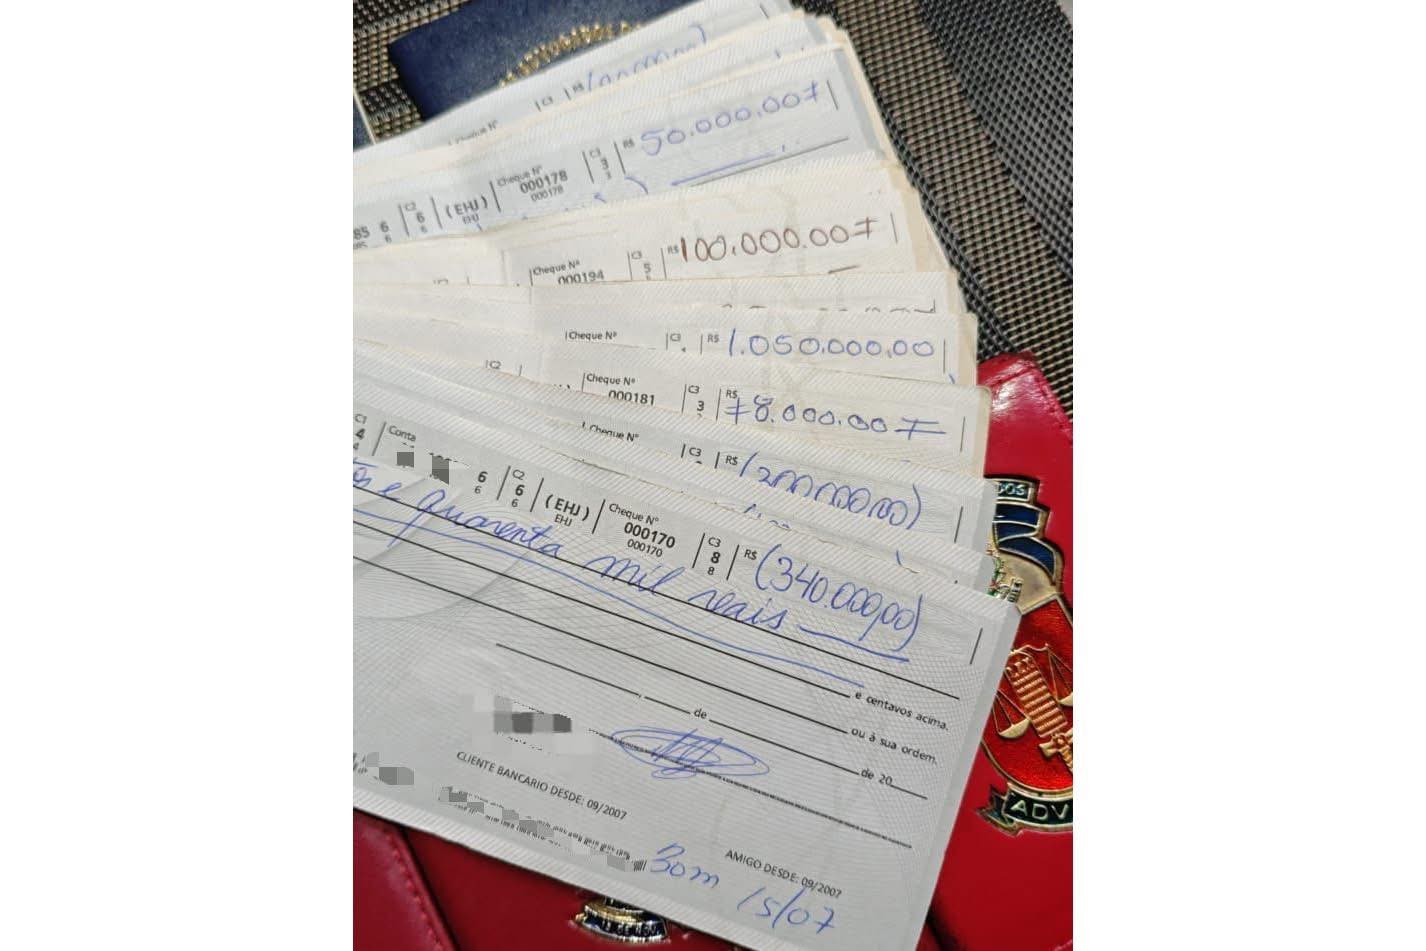 C3 R$
Cheque Nº
C3 3 3 R$ 50.000.00
Cheque Nº 000178 000178
85 6 6 C2 6 6 (EHJ) EHJ
R$ 100.000.00
Cheque Nº 000194 C3 5
Cheque Nº C3 R$ 1.050.000,00
C2
Cheque Nº 000181 C3 3 R$ 8.000.00
Cheque Nº C3 R$
C1 4 4 Conta 6 6 C2 6 6 (EHJ) EHJ Cheque Nº 000170 000170 C3 8 8 R$ (340.000,00)
e quarenta mil reais
e centavos acima.
ou à sua ordem.
, de de 20
CLIENTE BANCARIO DESDE: 09/2007
AMIGO DESDE: 09/2007
Bom 15/07
ADV